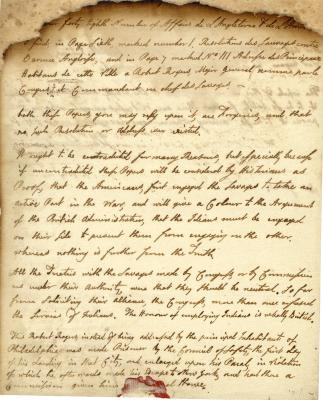 forty Eighth Number of Affairs de L'Angleterre & de L'Am
I find, in Page sixth marked number 1, Resolutions des Sauvages contre
L'armée Angloise, and in Page 7 marked No. III Adresse des Principaux
Habitans de cette Ville a Robert Rogers, Major general nommé par le
Congress, et Commandant en chef des Sauvages
both these Papers you may rely upon it, are Forgeries, and that
no such Resolution or Address ever existed,
It ought to be contradicted for many Reasons, but especially because
if uncontradicted these Papers will be considered by Historians as
Proofs, that the Americans first engaged the Savages to take an
active Part in the War, and will give a Colour to the Argument
of the British Administration, that the Indians must be engaged
on their side to prevent them from engaging on the other,
whereas nothing is further from the Truth
All the Treaties with the Savages made by Congress or by Commissioners
under their Authority were that they should be neutral. So far
from soliciting their alliance, the Congress, more than once refused
the service of Indians. The Honour of employing Indians is wholly British.
This Robert Rogers, instead of being addressed by the principal Inhabitants of
Philadelphia was made Prisoner by the Council of Safety, the first day
of his Landing in that City, and enlarged upon his Parol, in violation
of which he afterwards made his Escape to New York, and had there a
Commission given him